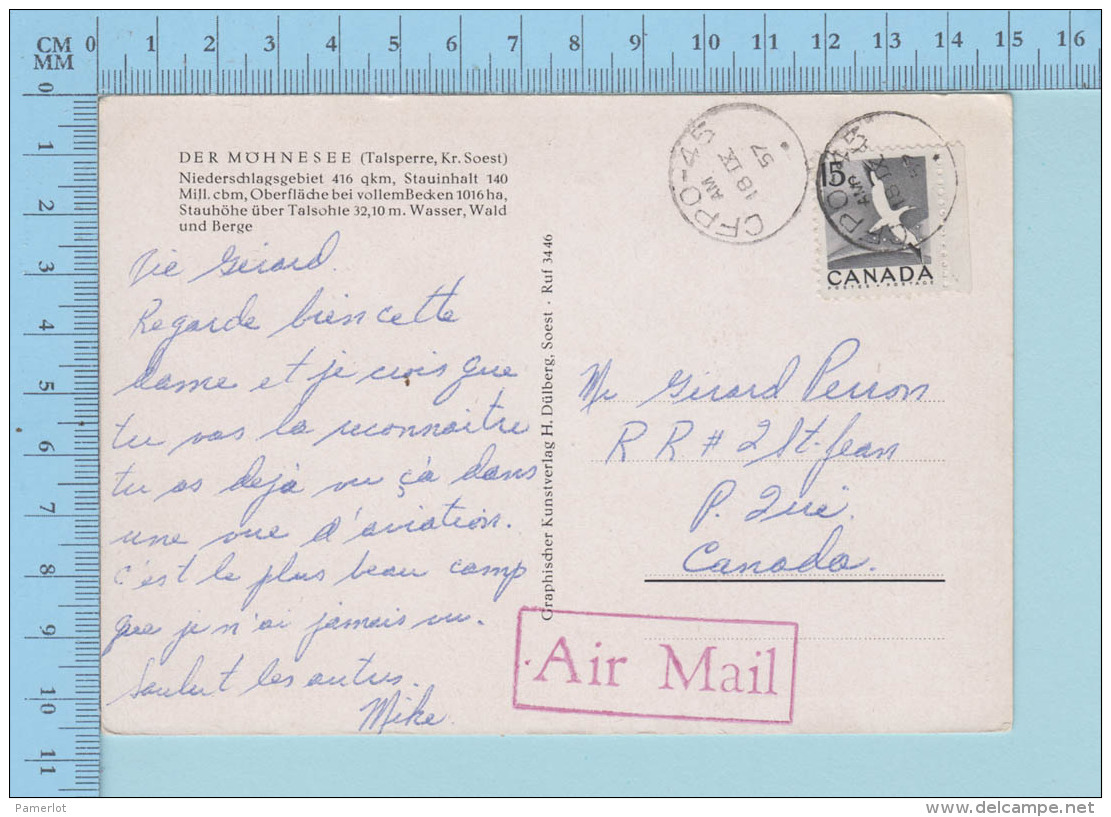 CM 0 1 2 3 4 5 6 7 8 9 10 11 12 13 14 15 16
MM
0
1
2
3
4
5
6
7
8
9
10
11
DER MÖHNESEE (Talsperre, Kr. Soest)
Niederschlagsgebiet 416 qkm, Stauinhalt 140
Mill. cbm, Oberfläche bei vollem Becken 1016 ha,
Stauhöhe über Talsohle 32,10 m. Wasser, Wald
und Berge
Gérard.
Regarde bien cette
dame et je crois que
tu vas la reconnaitre
tu as déjà vu çà dans
une vue d'aviation.
c'est le plus beau camp
que je n'ai jamais vu.
les autres.
Mike.
Graphischer Kunstverlag H. Dülberg, Soest · Ruf 3446
CFPO-45
AM
18 IX
57
CFPO-45
AM
18 IX
15
CANADA
POSTES · POSTAGE
Mr Gérard Perron
R R # 2 St-Jean
P. Qué.
Canada.
Air Mail
Pamerlot
delcampe.net